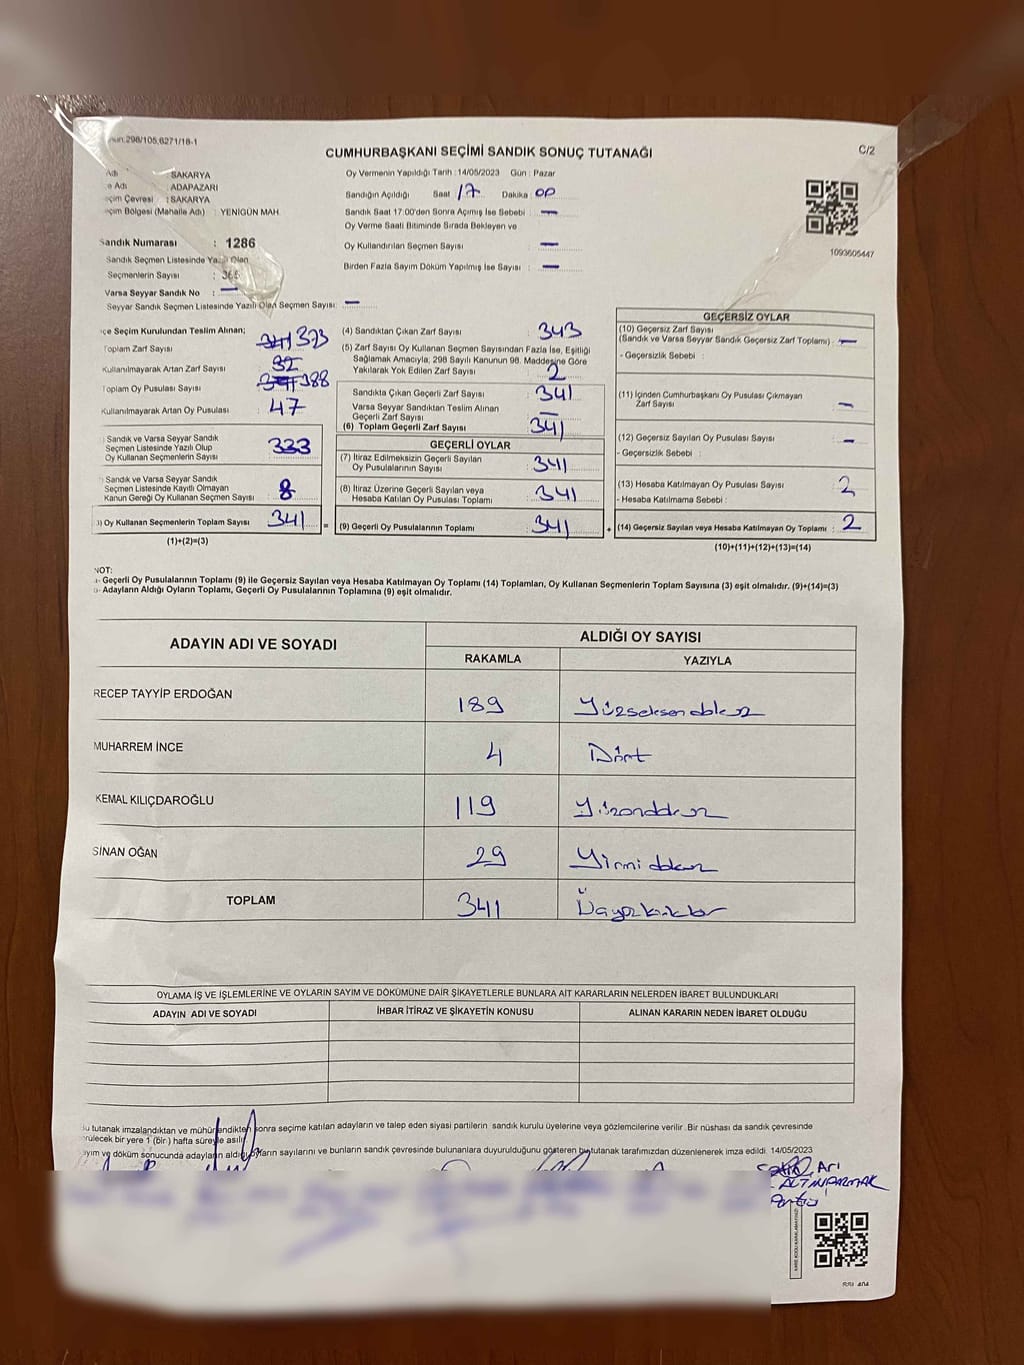 298/105,6271/18-1
CUMHURBAŞKANI SEÇİMİ SANDIK SONUÇ TUTANAĞI
C/2
SAKARYA
ADAPAZARI
: SAKARYA
(Mahalle Adı) : YENİGÜN MAH.
Sandık Numarası : 1286
Sandık Seçmen Listesinde Yazılı Olan
Seçmenlerin Sayısı : 365
Varsa Seyyar Sandık No : —
Seyyar Sandık Seçmen Listesinde Yazılı Olan Seçmen Sayısı: —
Oy Vermenin Yapıldığı Tarih : 14/05/2023 Gün : Pazar
Sandığın Açıldığı Saat 17 Dakika : 00
Sandık Saat 17:00'den Sonra Açımış İse Sebebi : —
Oy Verme Saati Bitiminde Sırada Bekleyen ve
Oy Kullandırılan Seçmen Sayısı : —
Birden Fazla Sayım Döküm Yapılmış İse Sayısı : —
1093605447
Seçim Kurulundan Teslim Alınan;
Toplam Zarf Sayısı 373
Kullanılmayarak Artan Zarf Sayısı : 32
Toplam Oy Pusulası Sayısı 388
Kullanılmayarak Artan Oy Pusulası : 47
Sandık ve Varsa Seyyar Sandık
Seçmen Listesinde Yazılı Olup
Oy Kullanan Seçmenlerin Sayısı : 333
Sandık ve Varsa Seyyar Sandık
Seçmen Listesinde Kayıtlı Olmayan
Kanun Gereği Oy Kullanan Seçmen Sayısı : 8
Oy Kullanan Seçmenlerin Toplam Sayısı : 341 =
(1)+(2)=(3)
(4) Sandıktan Çıkan Zarf Sayısı : 343
(5) Zarf Sayısı Oy Kullanan Seçmen Sayısından Fazla İse, Eşitliği
Sağlamak Amacıyla, 298 Sayılı Kanunun 98. Maddesine Göre
Yakılarak Yok Edilen Zarf Sayısı : 2
Sandıkta Çıkan Geçerli Zarf Sayısı : 341
Varsa Seyyar Sandıktan Teslim Alınan
Geçerli Zarf Sayısı : —
(6) Toplam Geçerli Zarf Sayısı : 341
GEÇERLİ OYLAR
(7) İtiraz Edilmeksizin Geçerli Sayılan
Oy Pusulalarının Sayısı : 341
(8) İtiraz Üzerine Geçerli Sayılan veya
Hesaba Katılan Oy Pusulası Toplamı : 341
(9) Geçerli Oy Pusulalarının Toplamı : 341 +
GEÇERSİZ OYLAR
(10) Geçersiz Zarf Sayısı
(Sandık ve Varsa Seyyar Sandık Geçersiz Zarf Toplamı) : —
- Geçersizlik Sebebi :
(11) İçinden Cumhurbaşkanı Oy Pusulası Çıkmayan
Zarf Sayısı : —
(12) Geçersiz Sayılan Oy Pusulası Sayısı : —
- Geçersizlik Sebebi :
(13) Hesaba Katılmayan Oy Pusulası Sayısı : 2
- Hesaba Katılmama Sebebi :
(14) Geçersiz Sayılan veya Hesaba Katılmayan Oy Toplamı : 2
(10)+(11)+(12)+(13)=(14)
NOT:
- Geçerli Oy Pusulalarının Toplamı (9) ile Geçersiz Sayılan veya Hesaba Katılmayan Oy Toplamı (14) Toplamları, Oy Kullanan Seçmenlerin Toplam Sayısına (3) eşit olmalıdır. (9)+(14)=(3)
- Adayların Aldığı Oyların Toplamı, Geçerli Oy Pusulalarının Toplamına (9) eşit olmalıdır.
ADAYIN ADI VE SOYADI ALDIĞI OY SAYISI
RAKAMLA YAZIYLA
RECEP TAYYİP ERDOĞAN 189 Yüzseksendokuz
MUHARREM İNCE 4 Dört
KEMAL KILIÇDAROĞLU 119 Yüzondokuz
SİNAN OĞAN 29 Yirmi dokuz
TOPLAM 341 Üçyüzkırkbir
OYLAMA İŞ VE İŞLEMLERİNE VE OYLARIN SAYIM VE DÖKÜMÜNE DAİR ŞİKAYETLERLE BUNLARA AİT KARARLARIN NELERDEN İBARET BULUNDUKLARI
ADAYIN ADI VE SOYADI İHBAR İTİRAZ VE ŞİKAYETİN KONUSU ALINAN KARARIN NEDEN İBARET OLDUĞU
tutanak imzalandıktan ve mühürlendikten sonra seçime katılan adayların ve talep eden siyasi partilerin sandık kurulu üyelerine veya gözlemcilerine verilir. Bir nüshası da sandık çevresinde
bir yere 1 (bir) hafta süreyle asılır.
ve döküm sonucunda adayların aldığı oyların sayılarını ve bunların sandık çevresinde bulunanlara duyurulduğunu gösteren bu tutanak tarafımızdan düzenlenerek imza edildi. 14/05/2023
Arı
ALTINPARMAK